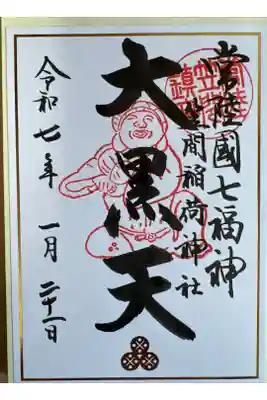 常陸國七福神
笠間稲荷神社
大黒天
令和七年 一月 二十一日